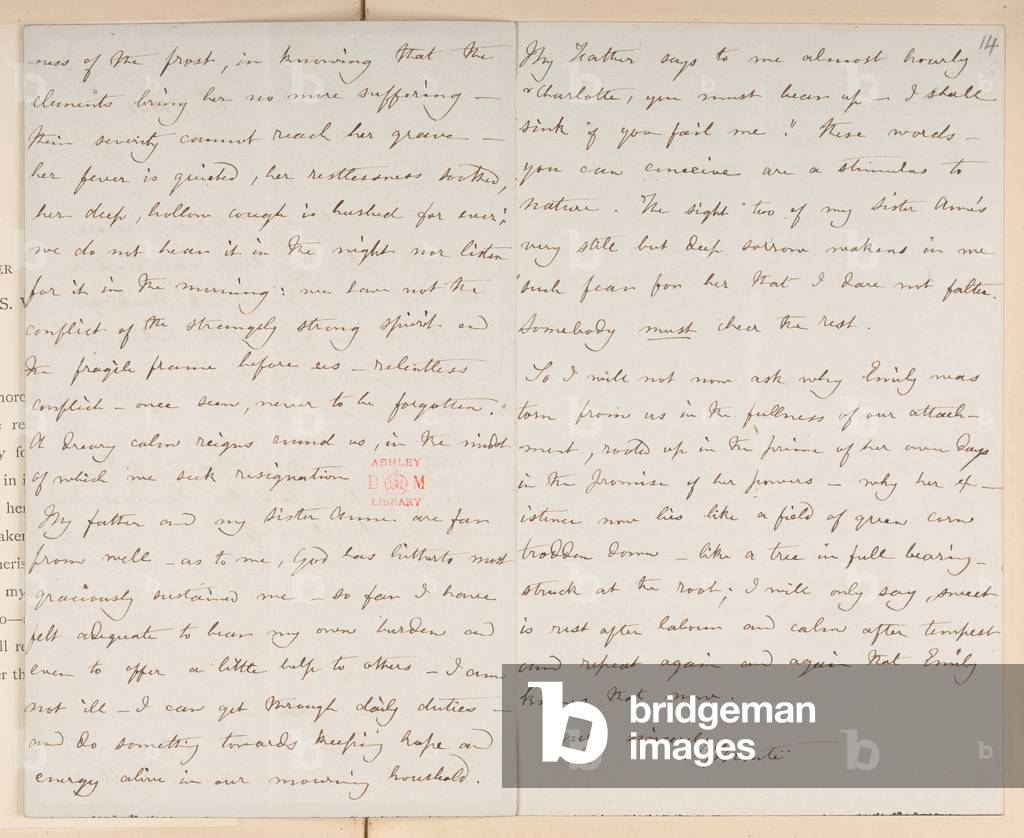 ness of the frost, in knowing that the
elements bring her no more suffering –
their severity cannot reach her grave –
her fever is quieted, her restlessness soothed,
her deep, hollow cough is hushed for ever;
we do not hear it in the night nor listen
for it in the morning: we have not the
conflict of the strangely strong spirit and
the fragile frame before us – relentless
conflict – once seen, never to be forgotten.
A dreary calm reigns round us, in the midst
of which we seek resignation
ASHLEY
B M
LIBRARY
My father and my Sister Anne are far
from well – as to me, God has hitherto most
graciously sustained me – so far I have
felt adequate to bear my own burden and
even to offer a little help to others – I am
not ill – I can get through daily duties –
and do something towards keeping hope and
energy alive in our mourning household.
14
My Father says to me almost hourly
"Charlotte, you must bear up – I shall
sink if you fail me!" these words –
you can conceive are a stimulus to
nature. The sight too of my Sister Anne's
very still but deep sorrow wakens in me
such fear for her that I dare not falter.
Somebody must cheer the rest.
So I will not now ask why Emily was
torn from us in the fullness of our attach-
ment, rooted up in the prime of her own days
in the promise of her powers – why her ex-
istence now lies like a field of green corn
trodden down – like a tree in full bearing –
struck at the root; I will only say, sweet
is rest after labour and calm after tempest
and repeat again and again that Emily
knows that now.
sincerely
bridgeman
images